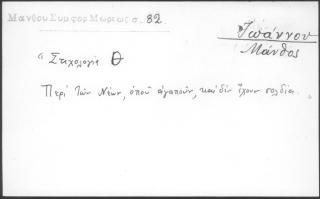 Μανθου Συμφορ Μωρεως σ. 82
Ἰωάννου
Μάνθος
"Στιχολογία Θ
Περί τῶν Νέων, ὁποῦ ἀγαποῦν, καί δέν ἔχουν σολδία.